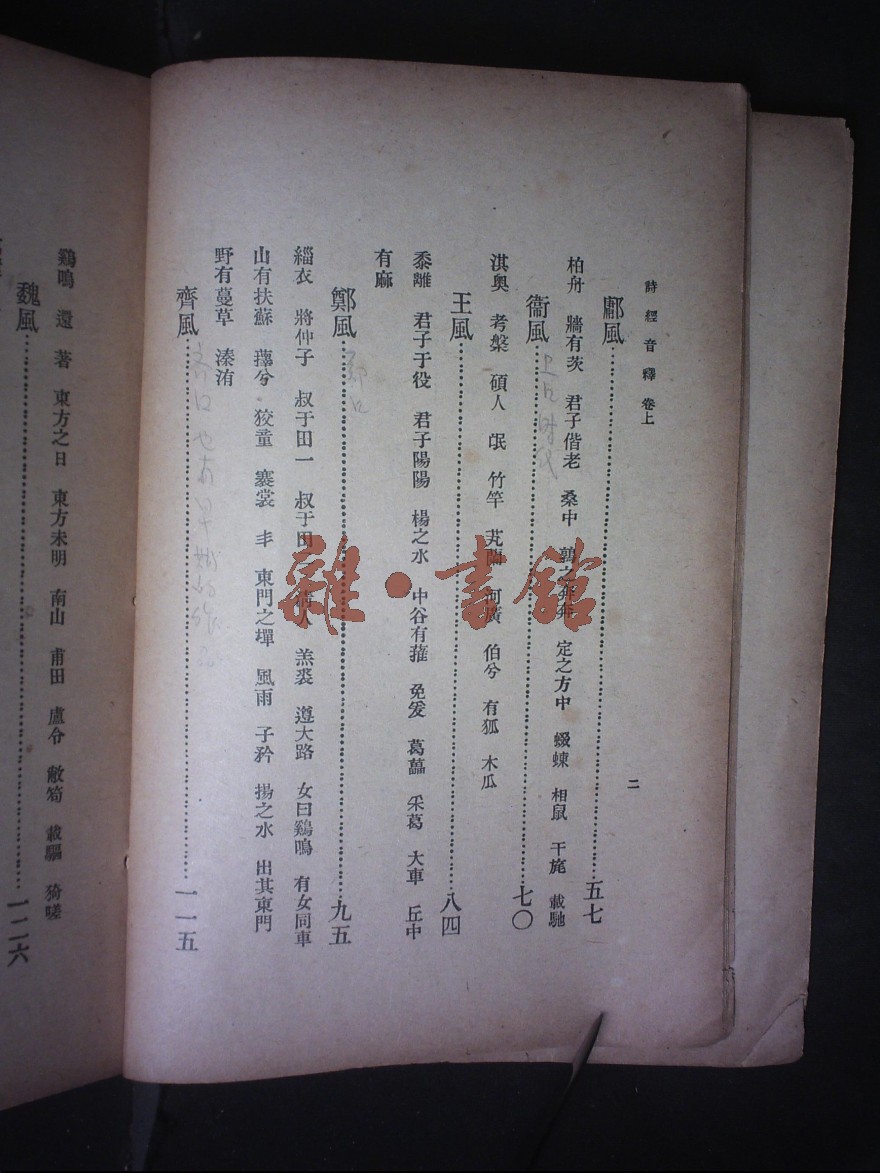 詩經音釋 卷上
二
鄘風 五七
柏舟 牆有茨 君子偕老 桑中 鶉之奔奔 定之方中 蝃蝀 相鼠 干旄 載馳
衞風 七〇
淇奧 考槃 碩人 氓 竹竿 芄蘭 河廣 伯兮 有狐 木瓜
王風 八四
黍離 君子于役 君子陽陽 楊之水 中谷有蓷 兔爰 葛藟 采葛 大車 丘中
有麻
鄭風 九五
緇衣 將仲子 叔于田一 叔于田二 清人 羔裘 遵大路 女曰鷄鳴 有女同車
山有扶蘇 蘀兮 狡童 褰裳 丰 東門之墠 風雨 子衿 揚之水 出其東門
野有蔓草 溱洧
齊風 一一五
鷄鳴 還 著 東方之日 東方未明 南山 甫田 盧令 敝笱 載驅 猗嗟
魏風 一二六
雜·書館